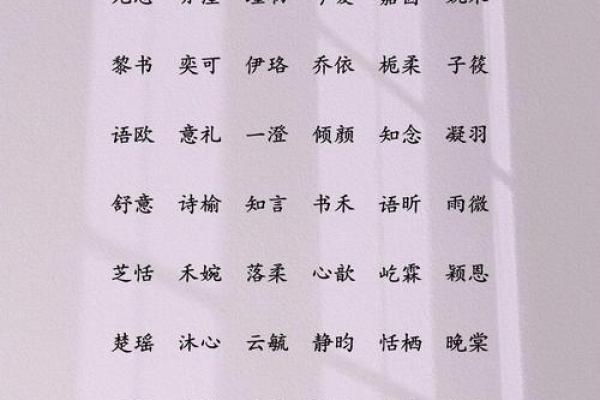 黎书 奕可 伊珞 乔依 栀柔 子筱
语欧 意礼 一澄 倾颜 知念 凝羽
舒意 诗榆 知言 书禾 语昕 雨微
芝恬 禾婉 落柔 心歆 屹霖 颖恩
楚瑶 沐心 云毓 静昀 恬栖 晚棠